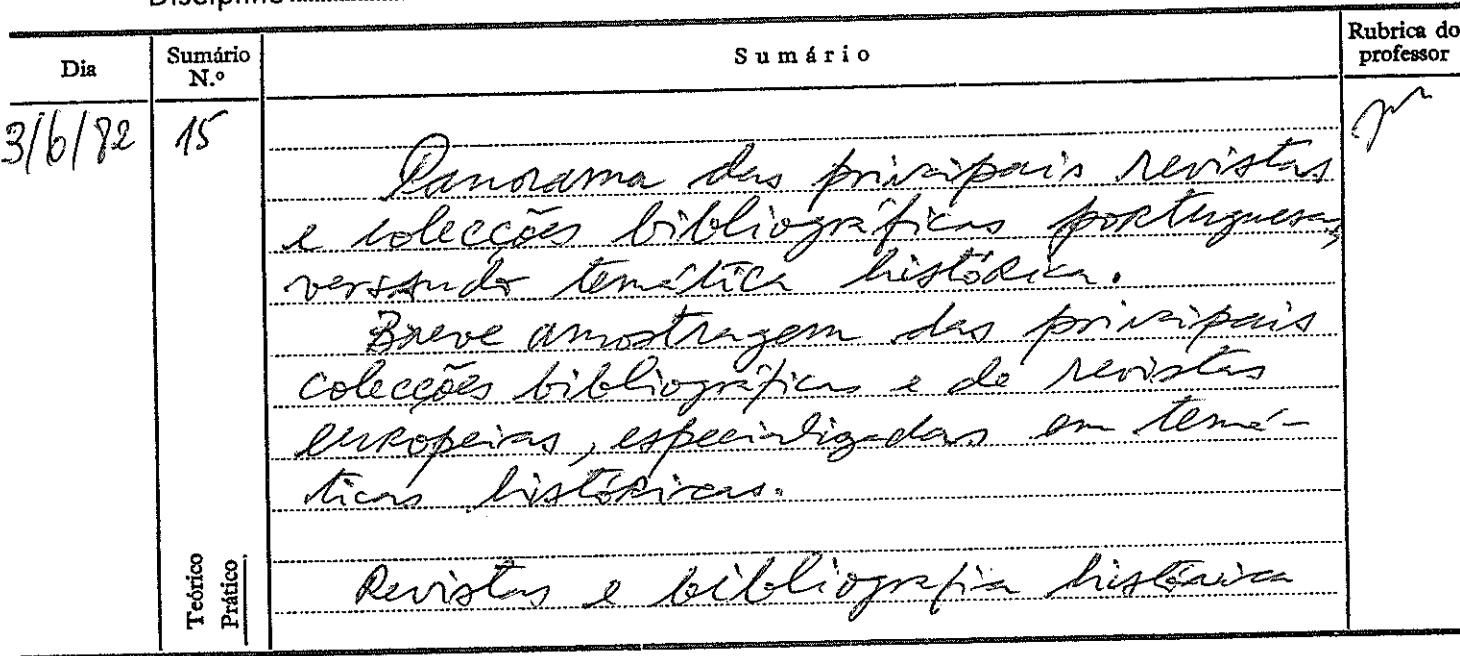 Dia
Sumário N.º
Sumário
Rubrica do professor
3/6/82
15
Panorama das principais revistas
e colecções bibliográficas portuguesas,
versando temática histórica.
Breve amostragem das principais
colecções bibliográficas e de revistas
europeias, especializadas em temá-
ticas históricas.
Teórico
Prático
Revistas e bibliografia histórica